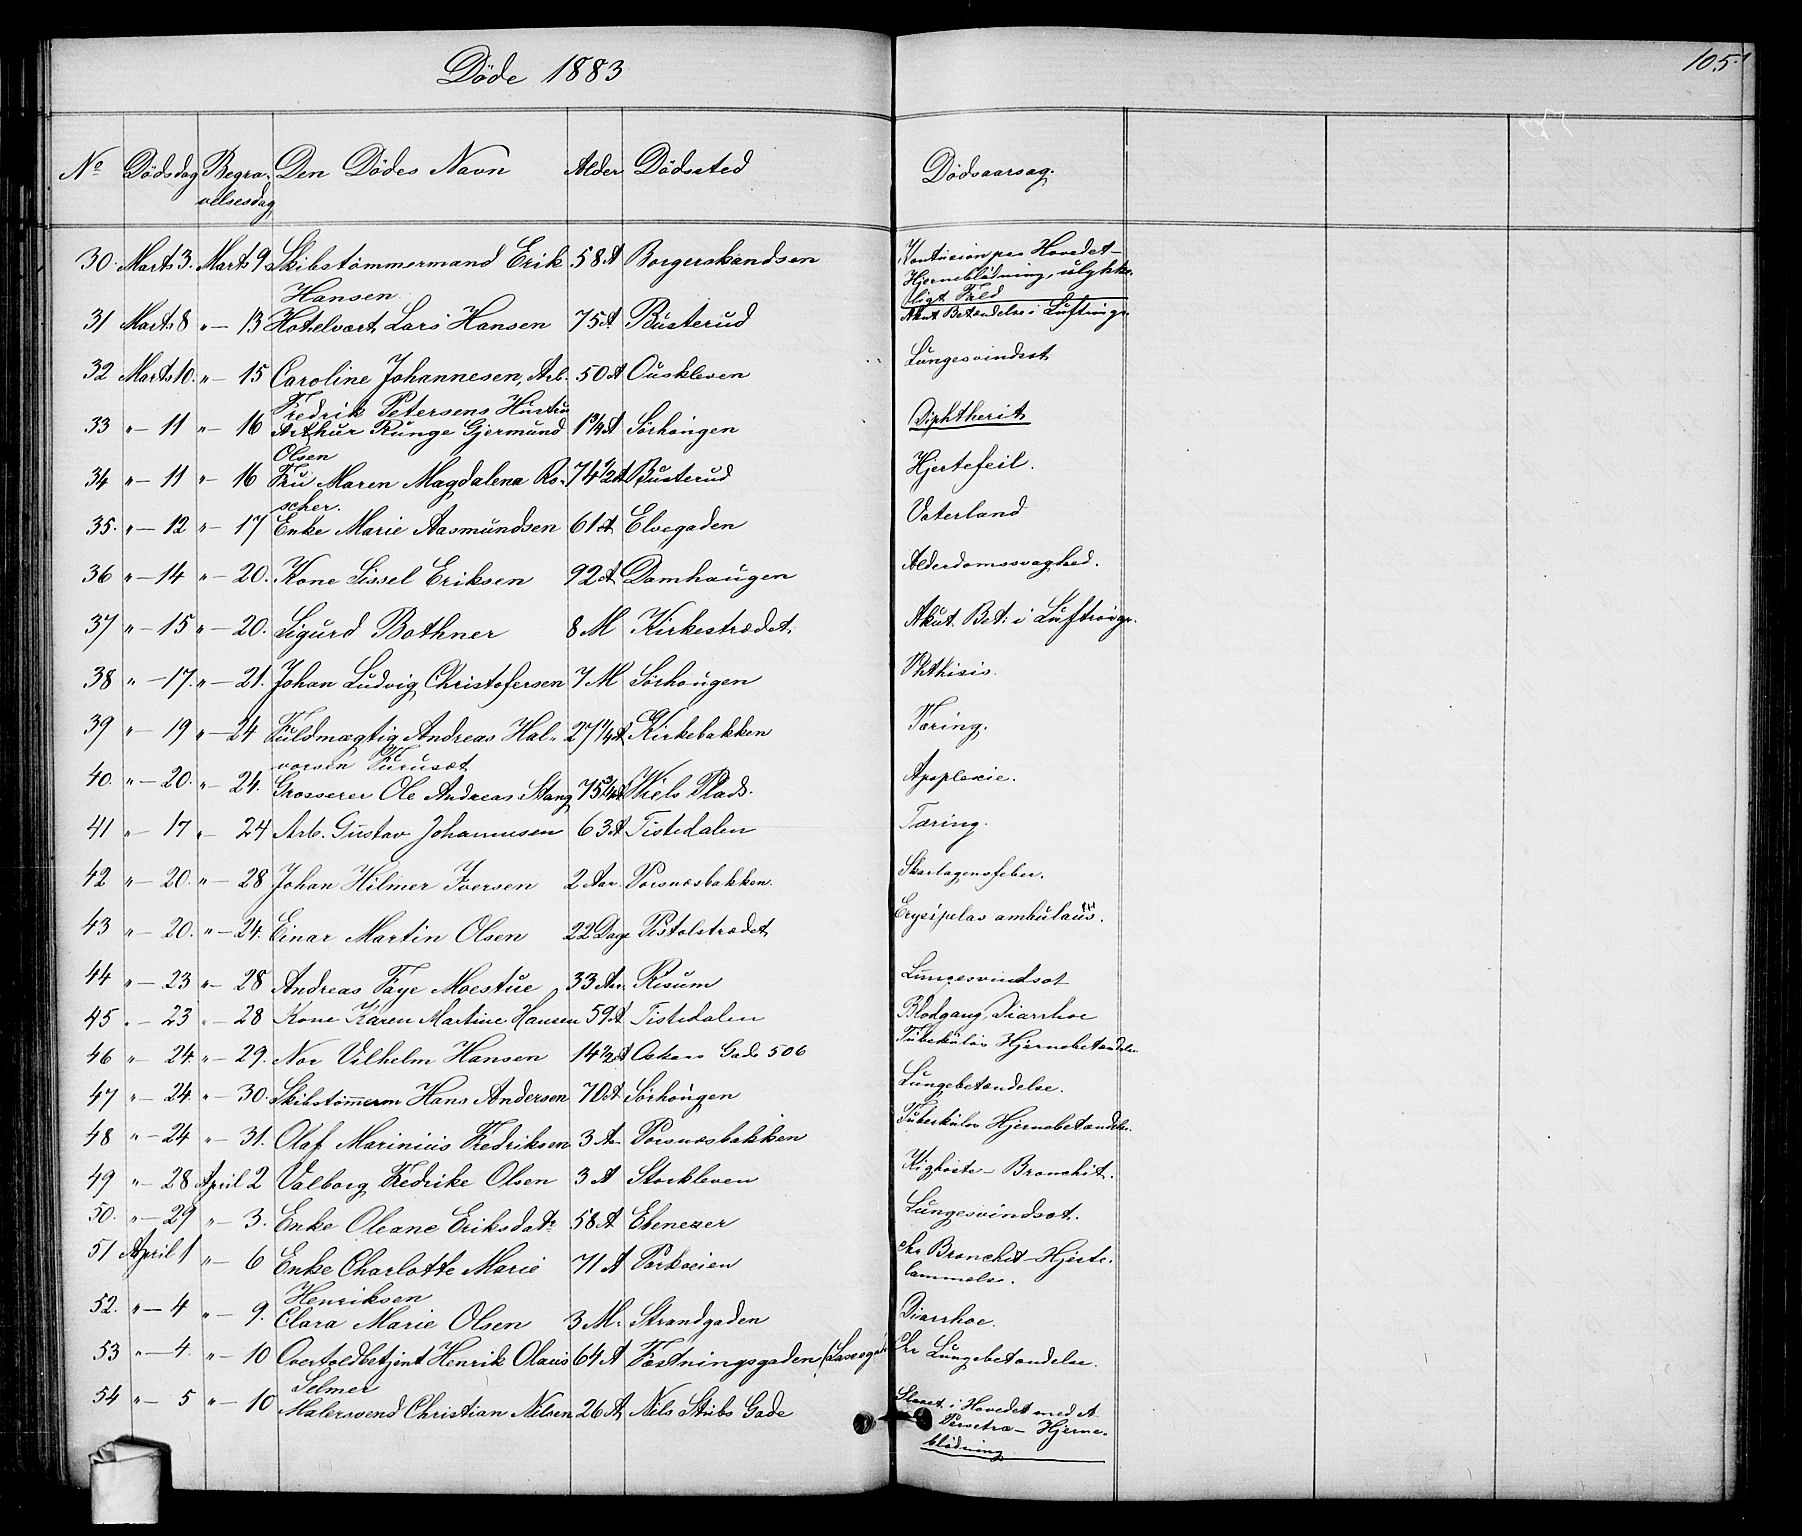 Døde 1883
105
No Dødsdag Begra- Den Dødes Navn Alder Dødssted Dødsaarsag.
velsesdag
30. Marts 3. Marts 9 Skibstømmermand Erik 58 A Borgerskandsen Kontusion paa Hovedet –
Hansen Hjerneblødning, ulykke-
ligt Fald
31 Marts 8 " – 13 Hotelvært Lars Hansen 75 A Busterud Akut Betændelse i Luftrørgr.
32 Marts 10. " – 15 Caroline Johannesen, Arb. 50 A Ouskleven Lungesvindsot
Fredrik Petersens Hustru
33 " – 11 " – 16 Arthur Runge Gjermund 1 3/4 A Sørhougen Diphtherit
Olsen
34 " – 11 " – 16 Fru Maren Magdalena Ro- 74 1/2 A Busterud Hjertefeil.
scher.
35. " – 12 " – 17 Enke Marie Aasmundsen 61 A Elvegaden Vaterland
36 " – 14 " – 20. Kone Sissel Eriksen 92 A Damhaugen Alderdomssvaghed.
37 " – 15 " – 20. Sigurd Bothner 8 M Kirkestrædet Akut. Bet: i Luftrørgr.
38 " – 17. " – 21. Johan Ludvig Christofersen 7 M Sørhougen Phthisis.
39 " – 19 " – 24 Fuldmægtig Andreas Hal- 27 1/4 A Kirkebakken Tæring.
vorsen Furuset
40. " – 20. " – 24. Grosserer Ole Andreas Stang 75 3/4 A Wiels Plads. Apoplexie.
41 " – 17 " – 24 Arb. Gustav Johannesen 63 A Tistedalen Tæring.
42 " – 20. " – 28 Johan Hilmer Iversen 2 Aar. Porsnæsbakken. Skarlagensfeber.
43 " – 20. " – 24. Einar Martin Olsen 22 Dage Pistolstrædet Erysipelas ambulans.
44 " – 23 " – 28 Andreas Faye Moestue 33 Aar. Risum Lungesvindsot
45 " – 23 " – 28 Kone Karen Martine Hansen 59 A Tistedalen Blodgang, Diarrhoe
46 " – 24. " – 29. Nor Vilhelm Hansen 14 1/2 A Oskars Gade 506 Tuberkuløs Hjernebetændelse
47 " – 24. " – 30. Skibstømmerm Hans Andersen 70 A Sørhougen Lungebetændelse.
48 " – 24 " – 31. Olaf Marinius Fredriksen 3 Aar Porsnæsbakken Tuberkuløs Hjernebetændelse.
49 " – 28 April 2 Valborg Fredrike Olsen 3 A Storkleven Kighoste – Bronchit.
50. " – 29 " – 3. Enke Oleane Eriksdatr 58 A Ebenezer Lungesvindsot.
51 April 1 " – 6 Enke Charlotte Marie 71 A Parkveien chr Bronchit – Hjerte-
Henriksen lammelse.
52. " – 4 " – 9. Clara Marie Olsen 3 M. Strandgaden Diarrhoe.
53 " – 4. " – 10 Overtoldbetjent Henrik Olaus 64 A Fæstningsgaden Chr Lungebetændelse.
Selmer
54 " – 5 " – 10 Malersvend Christian Nilsen 26 A Nils Stubs Gade Slaaet i Hovedet med et
– Hjerne-
blødning